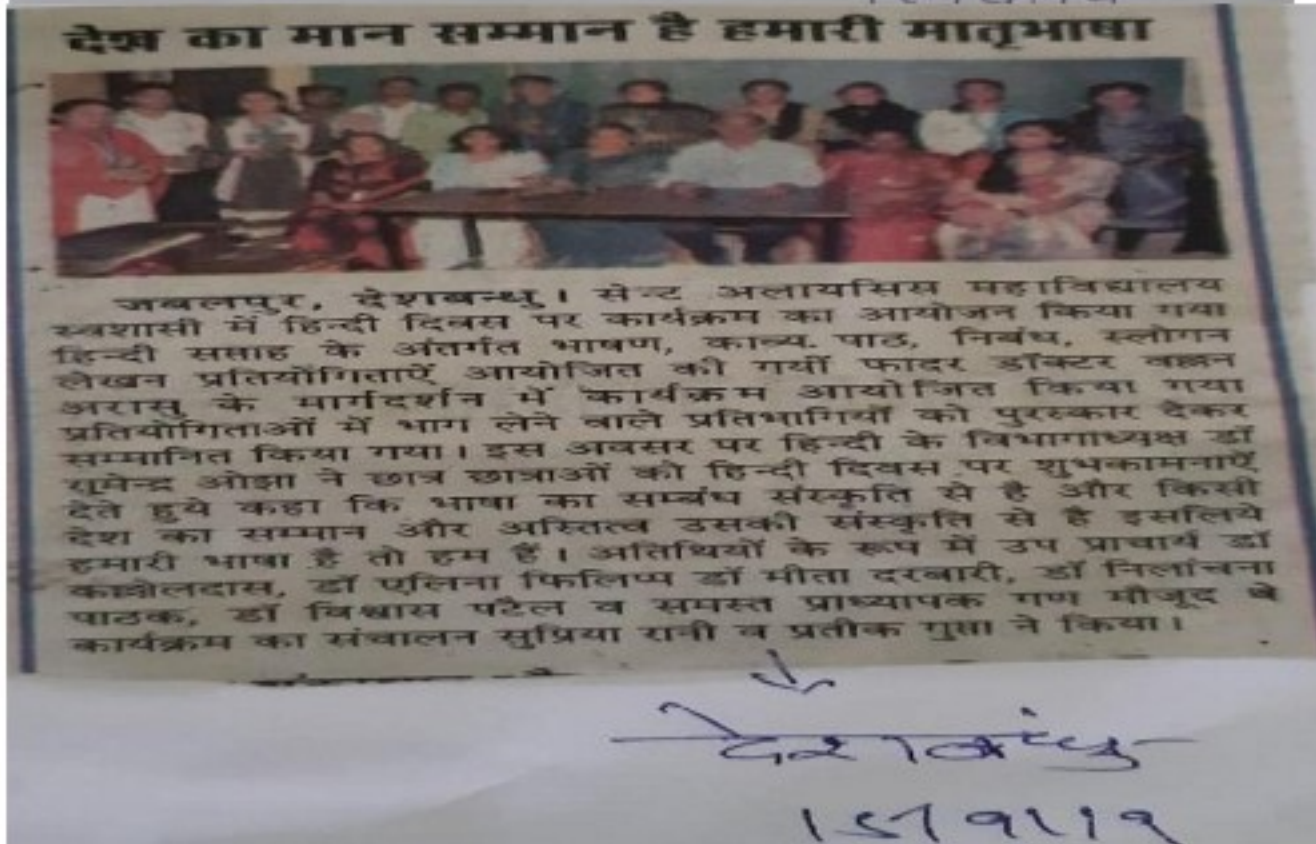 देश का मान सम्मान है हमारी मातृभाषा
जबलपुर, देशबन्धु। सेन्ट अलायसिस महाविद्यालय
स्वशासी में हिन्दी दिवस पर कार्यक्रम का आयोजन किया गया
हिन्दी सप्ताह के अंतर्गत भाषण, काव्य. पाठ, निबंध, स्लोगन
लेखन प्रतियोगिताऐं आयोजित की गयीं फादर डॉक्टर वल्लन
अरासु के मार्गदर्शन में कार्यक्रम आयोजित किया गया
प्रतियोगिताओं में भाग लेने वाले प्रतिभागियों को पुरस्कार देकर
सम्मानित किया गया। इस अवसर पर हिन्दी के विभागाध्यक्ष डॉ
ओझा ने छात्र छात्राओं को हिन्दी दिवस पर शुभकामनाऐं
देते हुये कहा कि भाषा का सम्बंध संस्कृति से है और किसी
देश का सम्मान और अस्तित्व उसकी संस्कृति से है इसलिये
हमारी भाषा है तो हम हैं। अतिथियों के रूप में उप प्राचार्य डॉ
कल्लोलदास, डॉ एलिना फिलिप्प डॉ मीता दरबारी, डॉ निलांचना
पाठक, डॉ विश्वास पटैल व समस्त प्राध्यापक गण मौजूद थे
कार्यक्रम का संचालन सुप्रिया रानी व प्रतीक गुप्ता ने किया।
देशबंधु